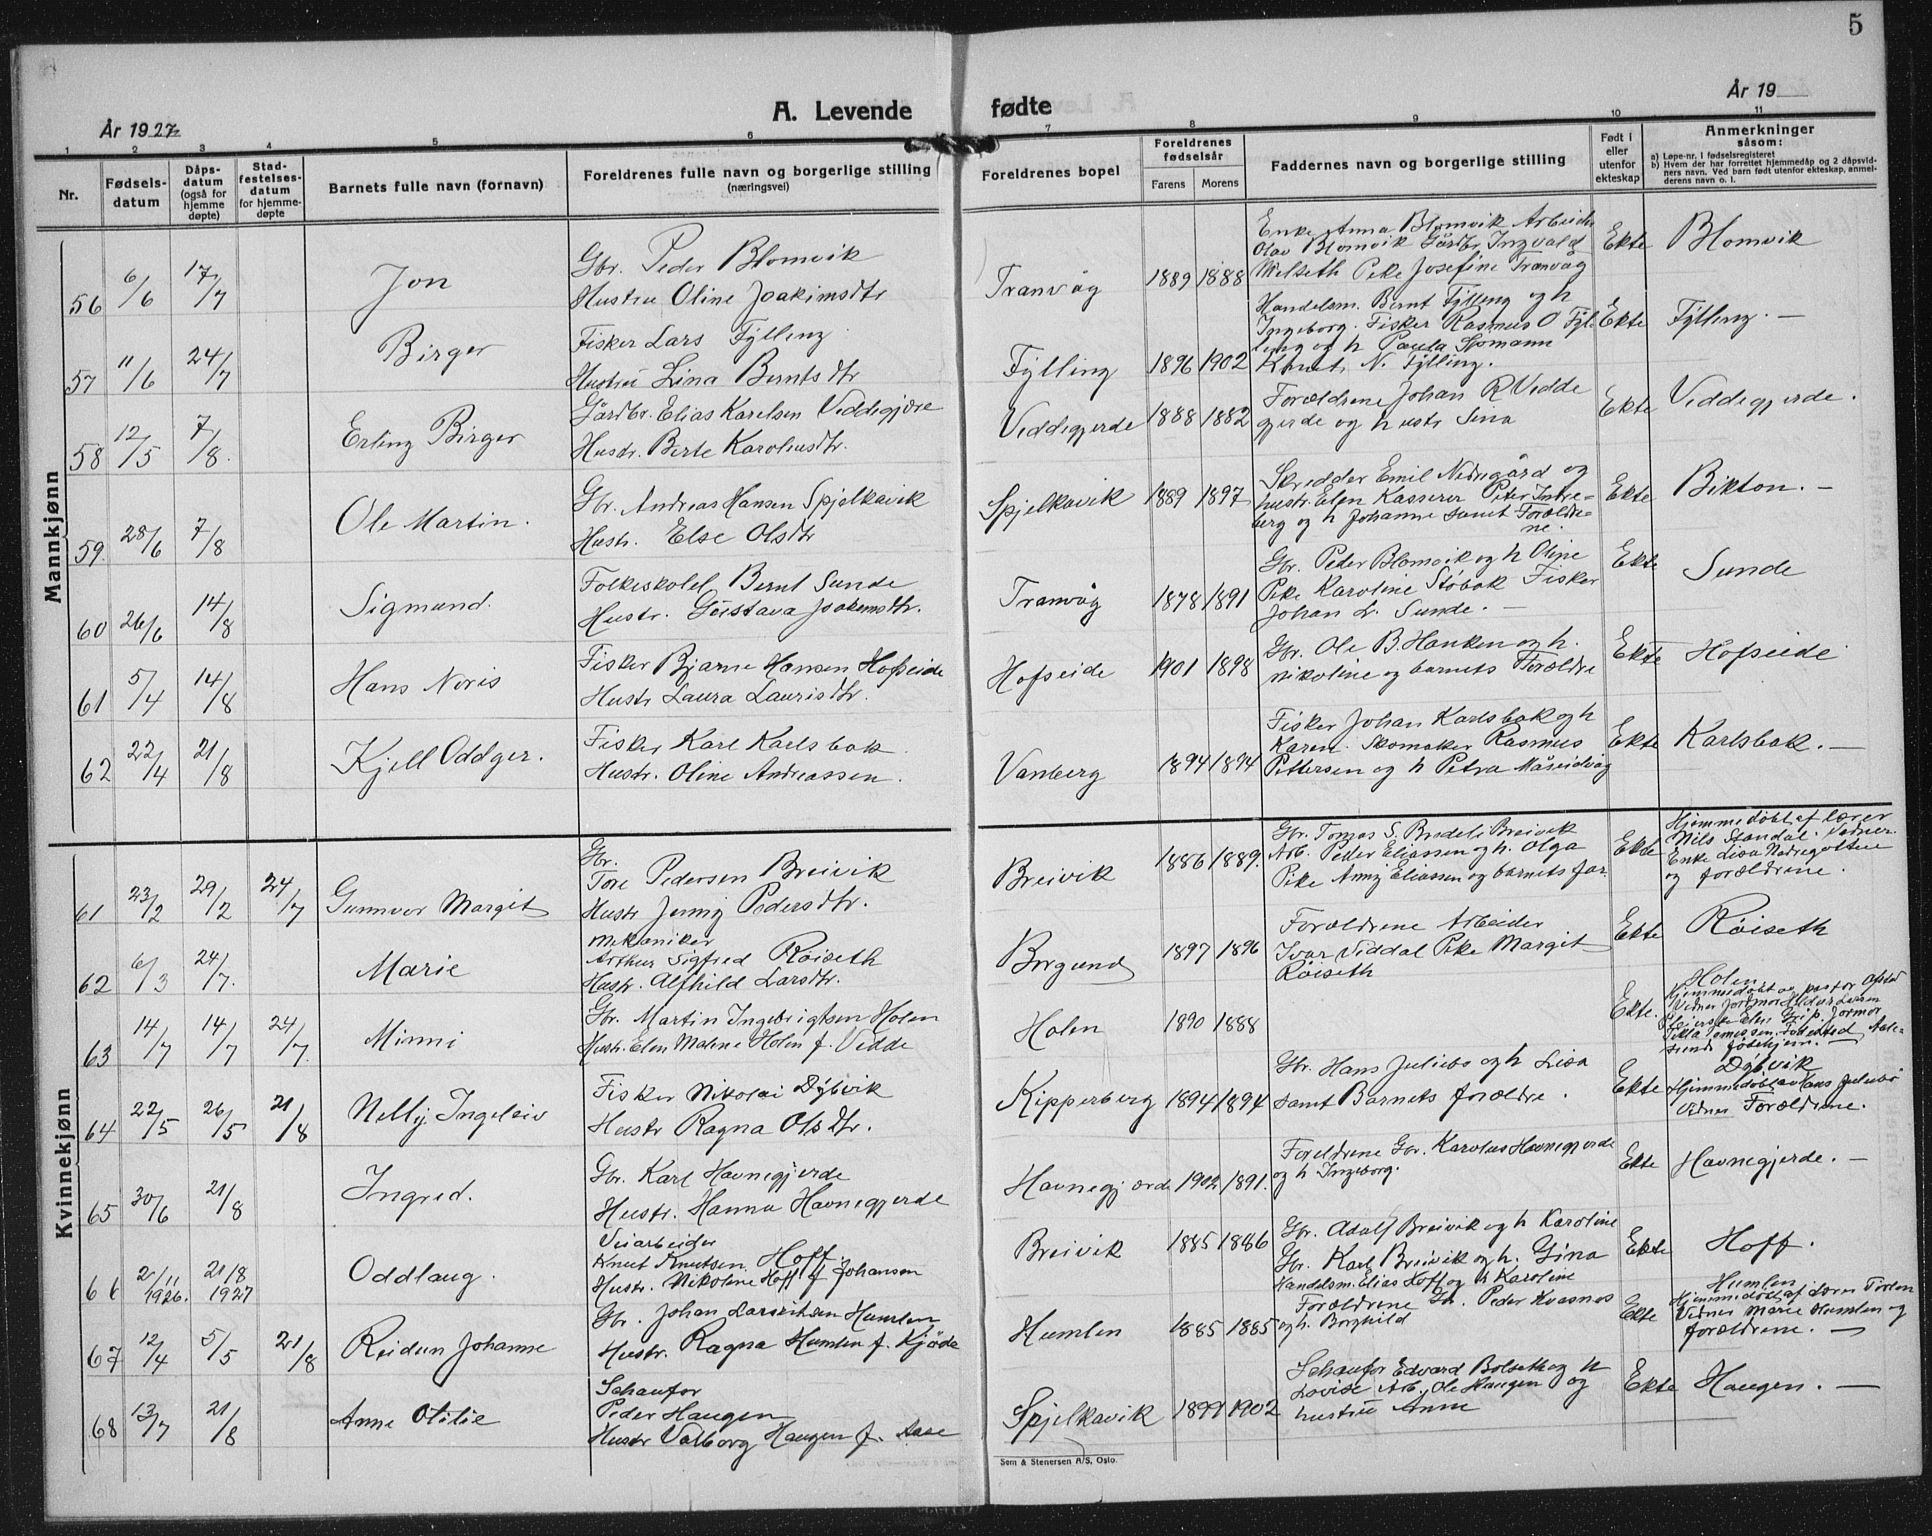 5
A. Levende fødte
År 1927
År 19
1 2 3 4 5 6 7 8 9 10 11
Nr.
Fødsels-datum
Dåps-datum (også for hjemme døpte)
Stad-festelses-datum for hjemme-døpte
Barnets fulle navn (fornavn)
Foreldrenes fulle navn og borgerlige stilling (næringsvei)
Foreldrenes bopel
Foreldrenes fødselsår
Farens
Morens
Faddernes navn og borgerlige stilling
Født i eller utenfor ekteskap
Anmerkninger såsom:
a) Løpe-nr. i fødselsregisteret
b) Hvem der har forrettet hjemmedåp og 2 dåpsvid-
ners navn. Ved barn født utenfor ekteskap, anmel-
derens navn o. l.
Mannkjønn
56 6/6 17/7 Jon
Gbr. Peder Blomvik
Hustru Oline Joakimsdtr
Tranvåg 1889 1888
Enke Anna Blomvik Arbeider
Olav Blomvik Gårdbr Ingvald
Melseth Pike Josefine Tranvåg
Ekte Blomvik
57 11/6 24/7 Birger
Fisker Lars Fylling
Hustru Lina Berntsdtr
Fylling 1896 1902
Handelsm. Bernt Fylling og h
Ingeborg. Fisker Rasmus O Fyl-
ling og h Paula
N. Fylling.
Ekte Fylling. —
58 12/5 7/8. Erling Birger
Gårdbr. Elias Karelsen Viddegjære
Hustr. Berte Karolusdtr.
Viddegjerde 1888 1882
Forældrene Johan R Vidde
gjerde og hustr Sina
Ekte Viddegjerde.
59. 28/6 7/8 Ole Martin.
Gbr. Andreas Hansen Spjelkavik
Hustr. Else Olsdtr
Spjelkavik 1889 1897
Skredder Emil Nedregård og
hustr. Elen Kasserer Peter Indre-
berg og h Johanne samt Foreldre-
ne.
Ekte Bikton. —
60 26/6 14/8 Sigmund.
Folkeskolel Bernt Sunde
Hustr. Gustava Joakimsdtr.
Tranvåg 1878 1891
Gbr. Peder Blomvik og h Oline
Pike Karoline Støbak Fisker
Johan L. Sunde. —
Ekte Sunde
61 5/4 14/8 Hans Noris
Fisker Bjarne Hansen Hofseide
Hustr Laura Laurisdtr.
Hofseide 1901 1898
Gbr. Ole B. Hanken og h.
nikoline og barnets Forældre
Ekte Hofseide
62 22/4 21/8 Kjell Oddger.
Fisker Karl Karlsbak
Hustr. Oline Andreassen.
Vanberg 1894 1894
Fisker Johan Karlsbak og h
Karen. Skomaker Rasmus
Pettersen og h Petra Måseidvåg
Ekte Karlsbak. —
Kvinnekjønn
61 23/2 29/2 24/7 Gunnvor Margit
Gbr.
Tore Pedersen Breivik
Hustr Jenny Pedersdtr.
Breivik 1886 1889.
Gbr. Tomas S. Breivik
Arb. Peder Eliassen og h. Olga
Pike Anny Eliassen og barnets far.
Ekte
Hjemmedøbt af lærer
Nils Standal. Vidner
Enke Lisa
og forældrene.
62 6/3 24/7. Marie
Mekaniker
Arthur Sigfred Røiseth
Hustr. Alfhild Larsdtr.
Borgund 1897 1896
Forældrene Arbeider
Ivar Viddal Pike Margit
Røiseth
Ekte Røiseth
63 14/7 14/7 24/7. Minni
Gbr. Martin Ingebrigtsen Holen
Hustr. Elen Malene Holen f. Vidde
Holen 1890 1888
Ekte.
Holen
Hjemmedøbt av pastor
64 22/5 26/5 21/8 Nelly Ingeleiv
Fisker Nikolai Dybvik
Hustr Ragna Olsdtr.
Kipperberg 1894 1894
Gbr. Hans Juliebø og h Lisa
samt Barnets forældre.
Ekte
Dybvik
Hjemmedøbt av Hans Juliebø
Vidner Forældrene.
65 30/6 21/8 Ingrid.
Gbr. Karl Havnegjerde
Hustr. Hanna Havnegjerde
Havnegjærde 1902 1891.
Foreldrene Gbr. Karolus Havnegjerde
og h Ingeborg.
Ekte Havnegjerde. —
66 2/11 1926. 21/8 1927 Oddlaug.
Veiarbeider
Knut Knutsen Hoff.
Hustr. Nikoline Hoff f Johansen
Breivik 1885 1886
Gbr. Adolf Breivik og h Karoline
Gbr. Karl Breivik og h. Gina
Handelsm. Elias Hoff og h Karoline
Ekte Hoff.
67 12/4 5/5 21/8 Reidun Johanne
Gbr. Johan Larseitsen Humlen
Hustr. Ragna Humlen f. Kjøde
Humlen 1885 1885
Forældrene Gbr. Peder Kvasnes
og h. Borghild
Ekte
Humlen
Hjemmedøbt af lærer
Vidner Marie Humlen og
forældrene. —
68 13/7 21/8 Anne Otilie
Schaufør
Peder Haugen
Hustr Valborg Haugen f. Aase
Spjelkavik 1899 1902
Schaufør Edvard Bolseth og h
Lovise Arb. Ole Haugen og
hustru Anne
Ekte Haugen. —
Sem & Stenersen A/S, Oslo.